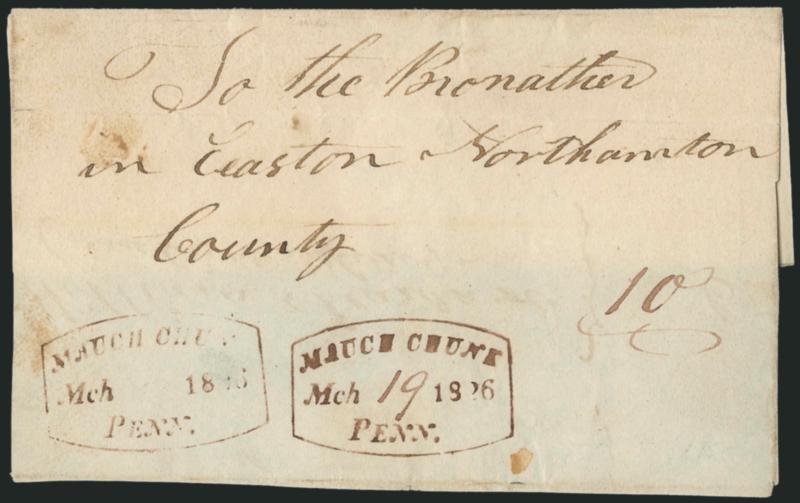 To the Pronather
in Easton Northamton
County
10
MAUCH CHUN
Mch 18 6
PENN.
MAUCH CHUNK
Mch 19 1826
PENN.